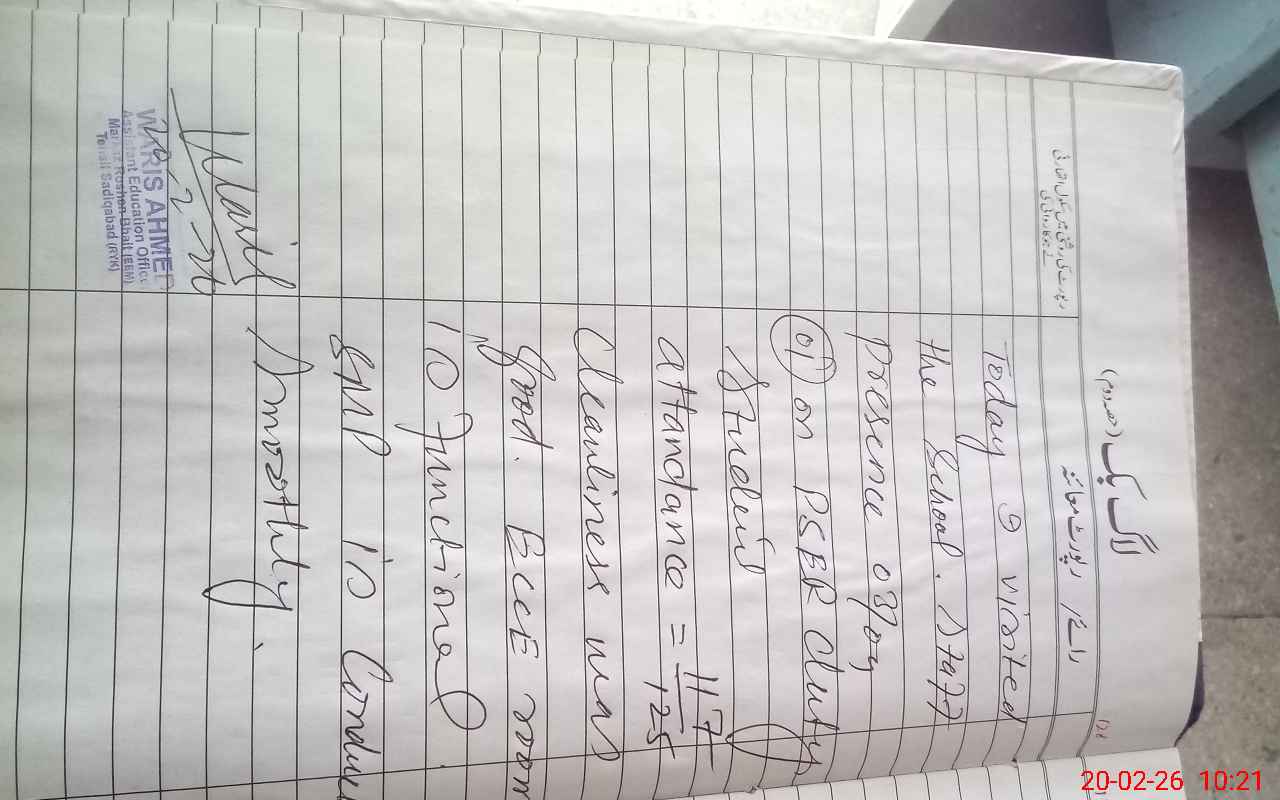 لاگ بک (حصہ دوم)
رائے / رپورٹ معائنہ
Today I visited
the School. Staff
presence 03/04
01 on PSER duty
Student
attandance = 117/125
Cleanliness was
good. ECCE room
is functional.
SMP is Condu
Smoothly.
Waris
20-2-26
WARIS AHMED
Assistant Education Office
Markaz Roshan Bhait (EEM)
Tehsil Sadiqabad (RYK)
20-02-26 10:21